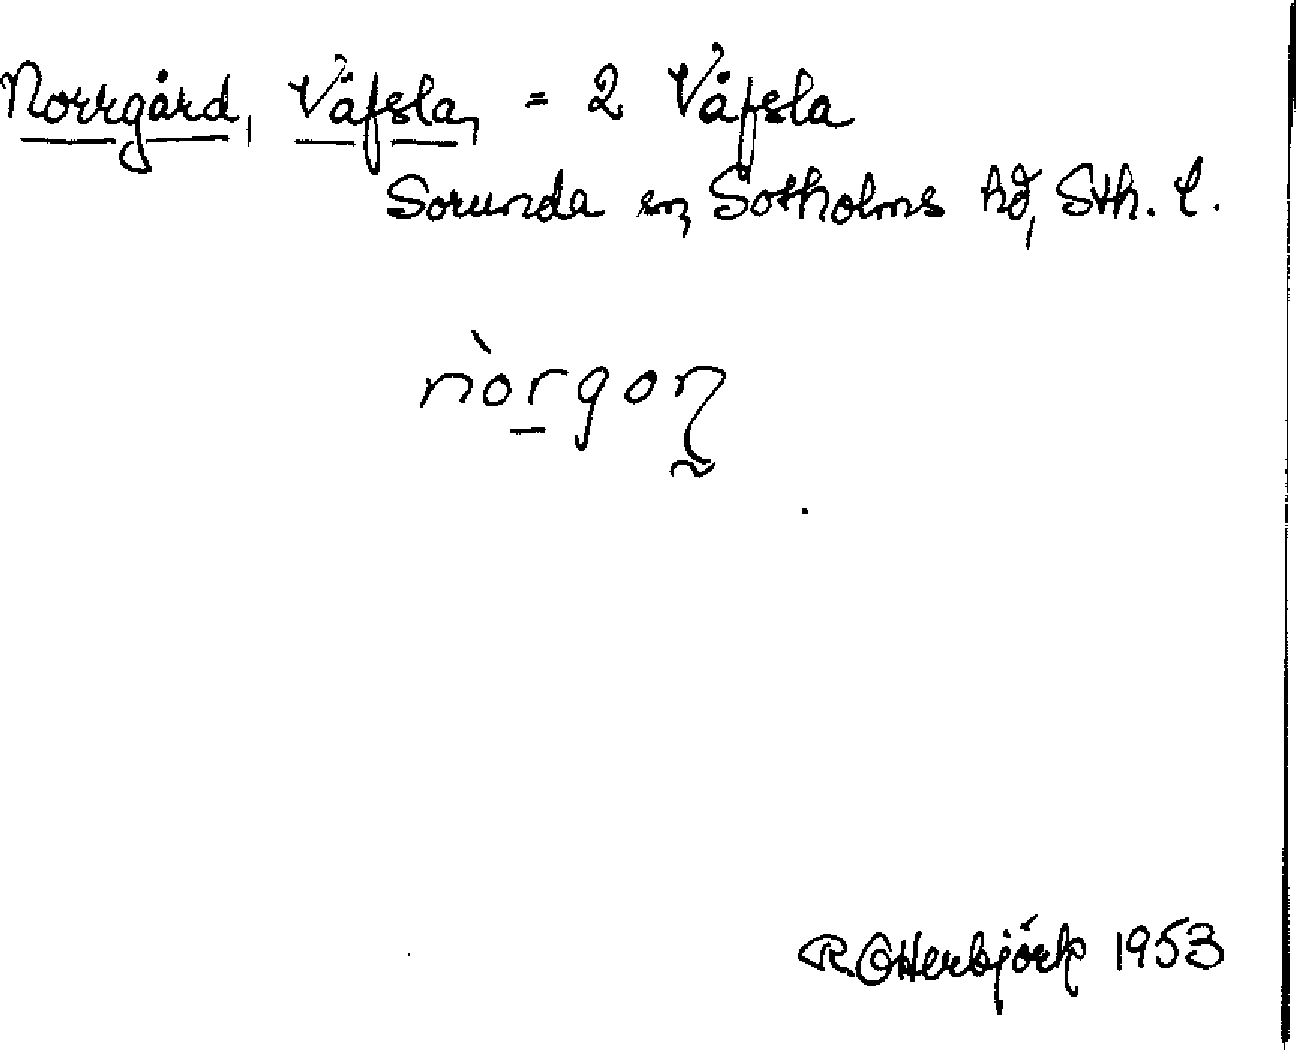 Norrgård, Väfsla, = 2 Väfsla
Sorunda sn, Sotholms hd, Sth. l.
nòrgoɳ
R. Otterbjörk 1953